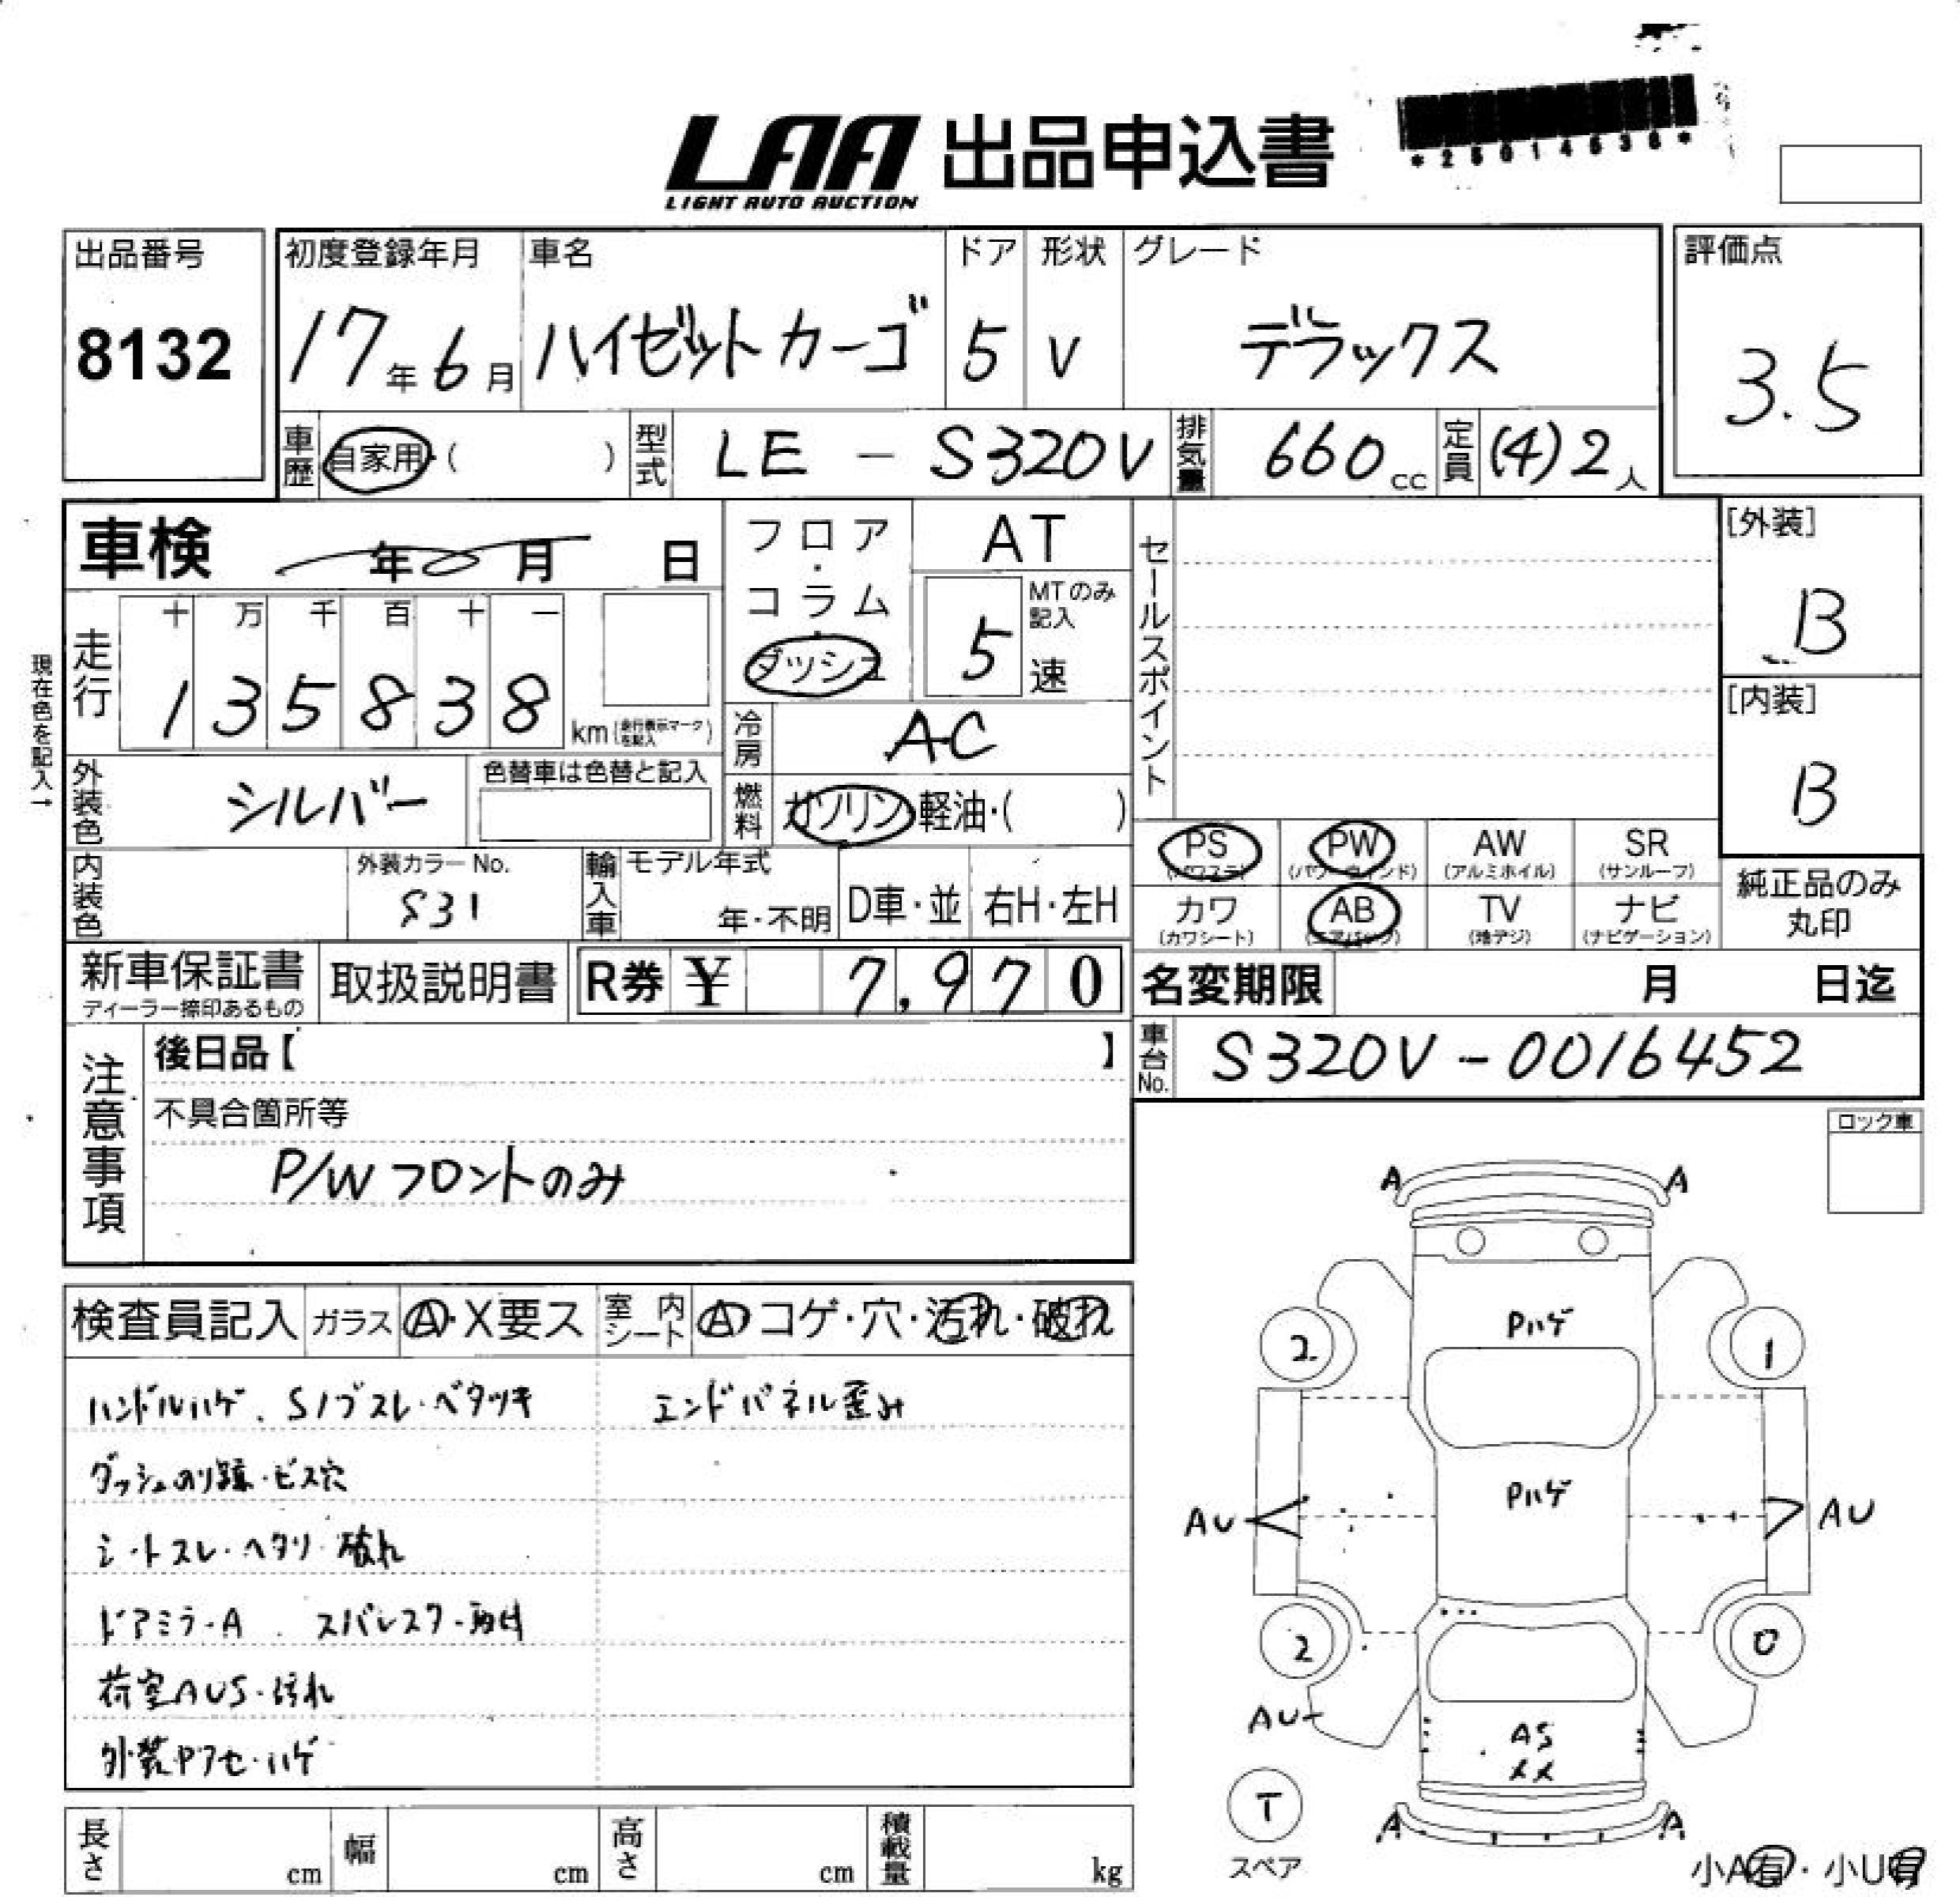 LAA 出品申込書
LIGHT AUTO AUCTION
出品番号
8132
初度登録年月
17年6月
車名
ハイゼットカーゴ
ドア
5
形状
V
グレード
デラックス
評価点
3.5
車歴 自家用・( )
型式 LE - S320V
排気量 660cc
定員 (4)2人
車検 年 月 日
フロア・コラム・ダッシュ
AT
MTのみ記入
5速
セールスポイント
[外装]
B
[内装]
B
現在色を記入→
走行
十 万 千 百 十 一
1 3 5 8 3 8
km(走行表示マークを記入)
冷房 AC
燃料 ガソリン・軽油・( )
外装色 シルバー
色替車は色替と記入
内装色
外装カラーNo.
S31
輸入車
モデル年式
年・不明
D車・並
右H・左H
PS AW SR
(パワステ) PW (パワーウィンド) (アルミホイル) (サンルーフ)
カワ AB TV ナビ
(カワシート) (エアバック) (地デジ) (ナビゲーション)
純正品のみ
丸印
新車保証書
ディーラー捺印あるもの
取扱説明書
R券 ¥ 7,970
名変期限 月 日迄
車台No. S320V-0016452
注意事項
後日品【 】
不具合箇所等
P/Wフロントのみ
ロック車
検査員記入 ガラス A・X要ス 室内シート A コゲ・穴・汚れ・破れ
ハンドルハゲ、Sノブスレ・ベタツキ エンドパネル歪み
ダッシュのり跡・ビス穴
シートスレ・ヘタリ・破れ
ドアミラーA
荷室AUS・汚れ
外装Pアセ・ハゲ
A A
Pハゲ
2 1
Pハゲ
AU AU
2 0
AU
AS
XX
T
スペア
A A
小A有・小U有
長さ cm
幅 cm
高さ cm
積載量 kg